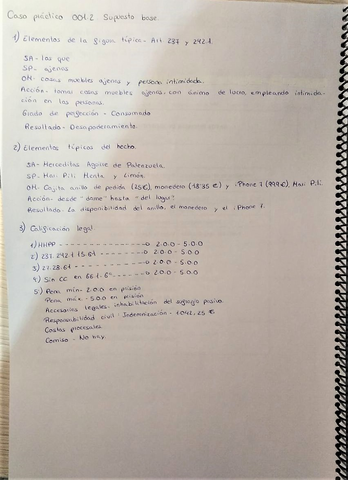 Caso práctico 001.2 Supuesto base
1) Elementos de la figura típica - Art. 237 y 242.1
SA - los que
SP - ajenas
OM - cosas muebles ajenas y persona intimidada.
Acción - tomar cosas muebles ajenas, con ánimo de lucro, empleando intimida-
ción en las personas.
Grado de perfección - Consumado
Resultado - Desapoderamiento.
2) Elementos típicos del hecho.
SA - Merceditas Aguirre de Palenzuela.
SP - Mari Pili Menta y Limón.
OM - Cajita anillo de pedida (25€), monedero (18'35 €) y iPhone 7 (999€), Mari Pili
Acción - desde "dame" hasta "del lugar"
Resultado - La disponibilidad del anillo, el monedero y el iPhone 7.
3) Calificación legal
1) HHPP - - - - - - - - - - - - - - 2.0.0 - 5.0.0
2) 237. 242.1 - - - - - - - - 2.0.0 - 5.0.0
3) 27. 28. - - - - - - - - - 2.0.0 - 5.0.0
4) Sin CC en 66.1.6ª - - - - - 2.0.0 - 5.0.0
5) Pena mín. 2.0.0 en prisión
Pena máx - 5.0.0 en prisión
Accesorias legales - inhabilitación del sufragio pasivo
Responsabilidad civil - Indemnización - 1042.25 €
Costas procesales
Comiso - No hay